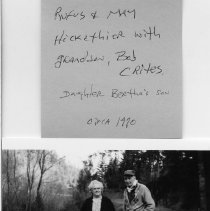 Rufus & May
Heckethier with
grandson, Bob
CRITES
Daughter Bertha's son
CIRCA 1990